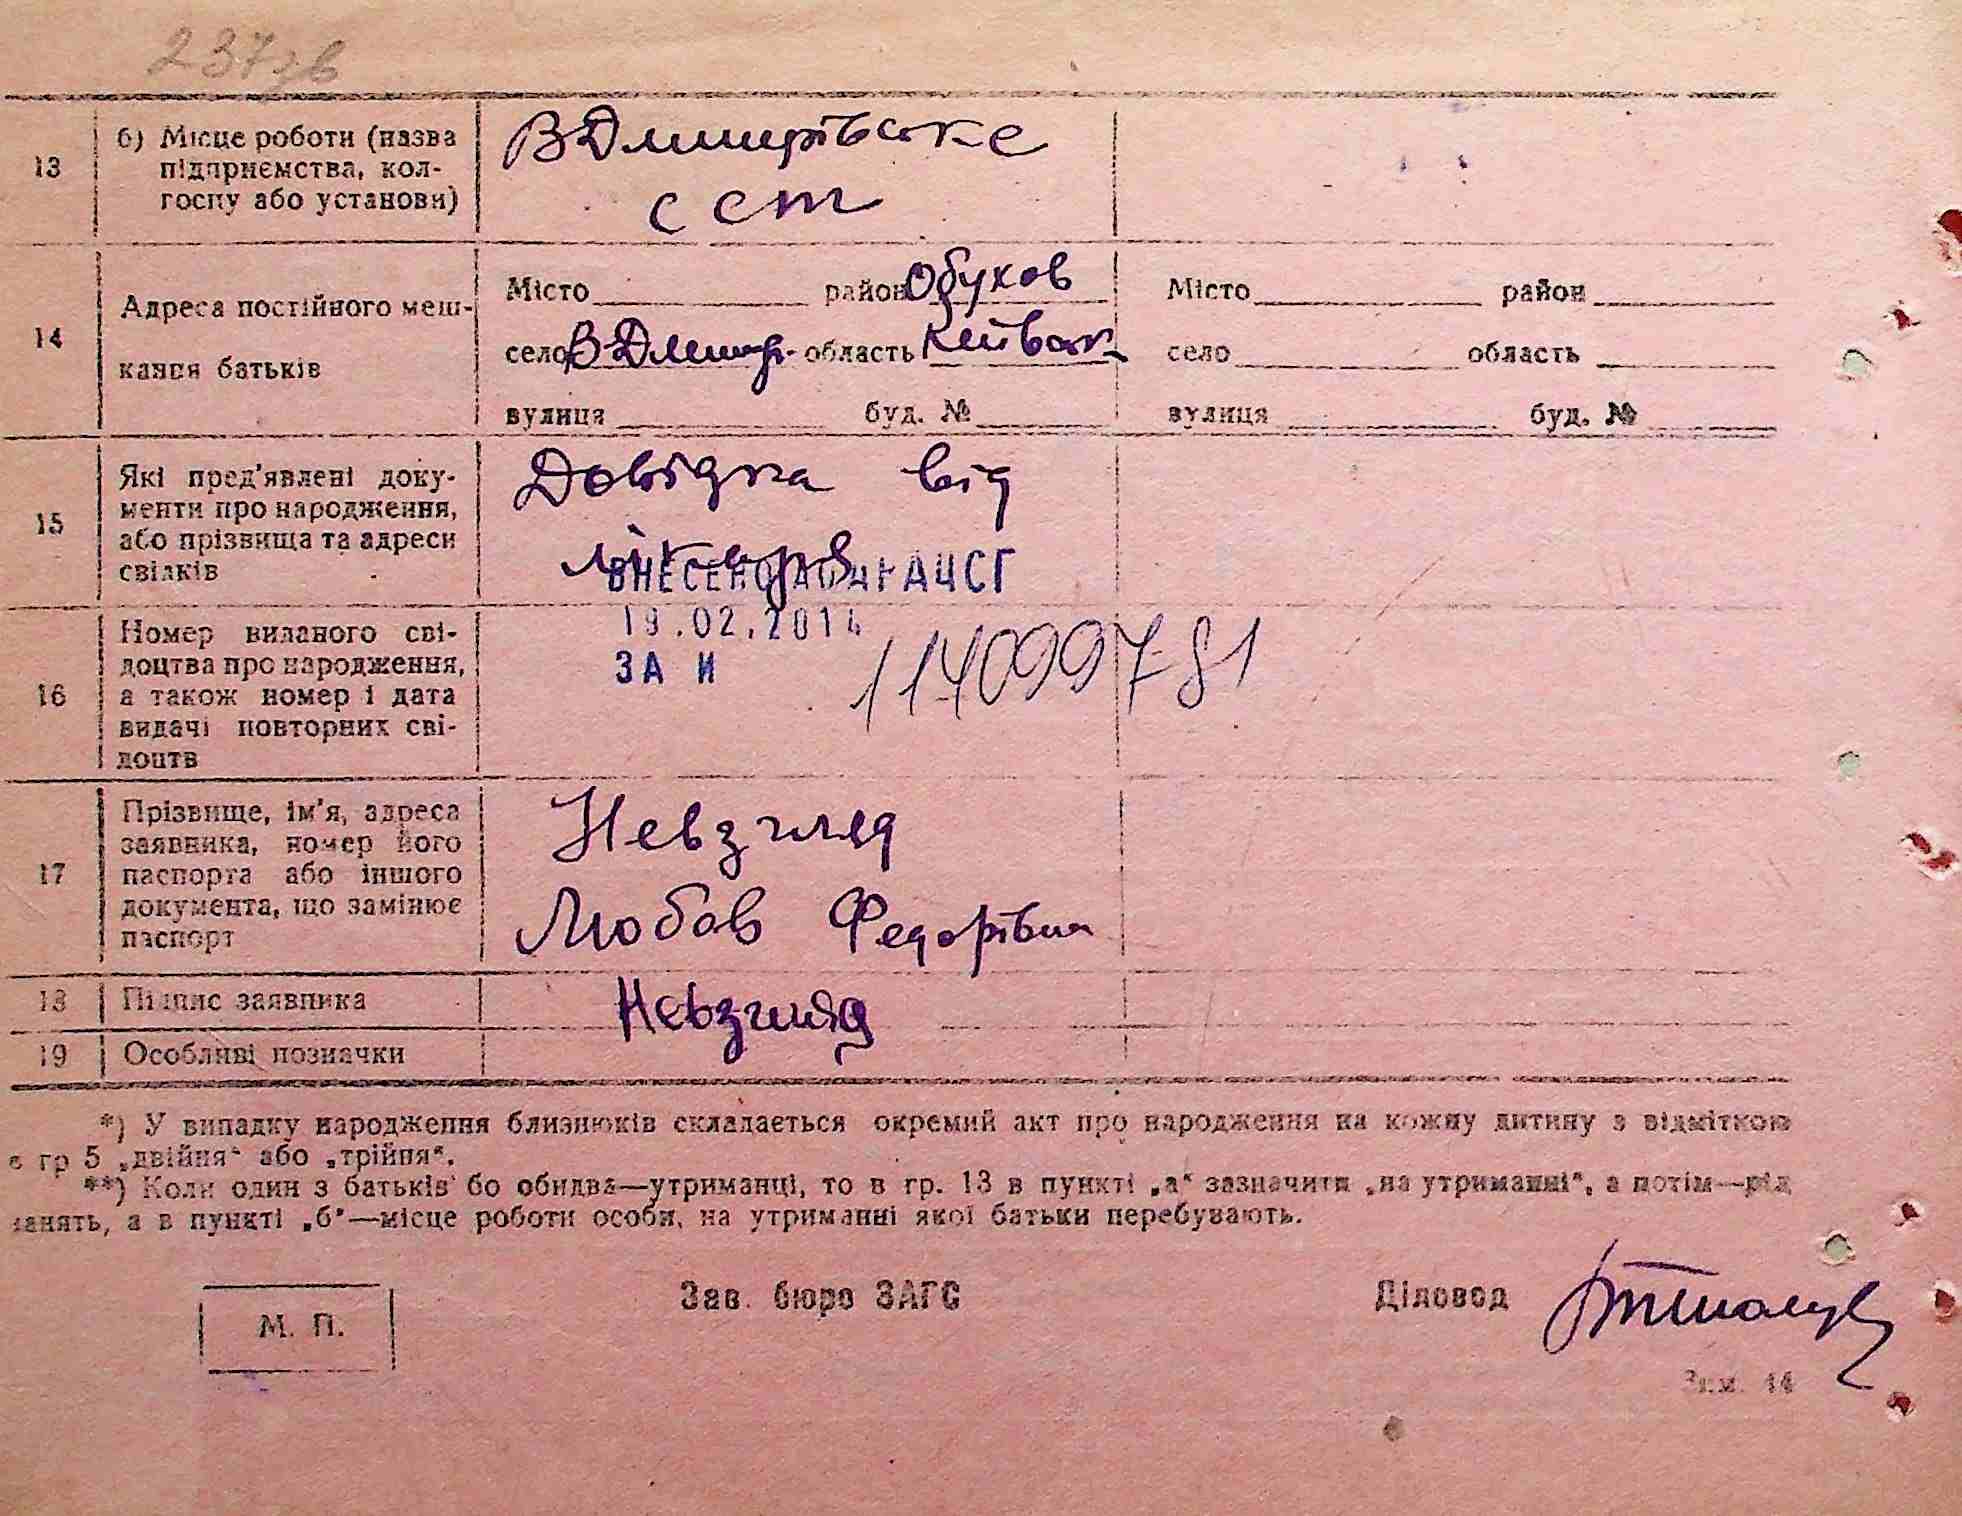 237зв
13
б) Місце роботи (назва
підприємства, кол-
госпу або установи)
В Дмитрівське
ССТ
14
Адреса постійного меш-
кання батьків
Місто район Обухов
село В-Дмитр. область Київськ
вулиця буд. №
Місто район
село область
вулиця буд. №
15
Які пред'явлені доку-
менти про народження,
або прізвища та адреси
свідків
Довідка від
лікаря
ВНЕСЕНО ДО ДРАЦСГ
19.02.2014
ЗА И
114099781
16
Номер виданого сві-
доцтва про народження,
а також номер і дата
видачі повторних сві-
доцтв
17
Прізвище, ім'я, адреса
заявника, номер його
паспорта або іншого
документа, що замінює
паспорт
Невзгляд
Любов Федорівна
18
Підпис заявника
Невзгляд
19
Особливі позначки
*) У випадку народження близнюків складається окремий акт про народження на кожну дитину з відміткою
в гр 5 „двійня“ або „трійня“.
**) Коли один з батьків бо обидва—утриманці, то в гр. 13 в пункті „а“ зазначити „на утриманні“, а потім—рід
занять, а в пункті „б“—місце роботи особи, на утриманні якої батьки перебувають.
М. П.
Зав. бюро ЗАГС
Діловод
Зам. 14